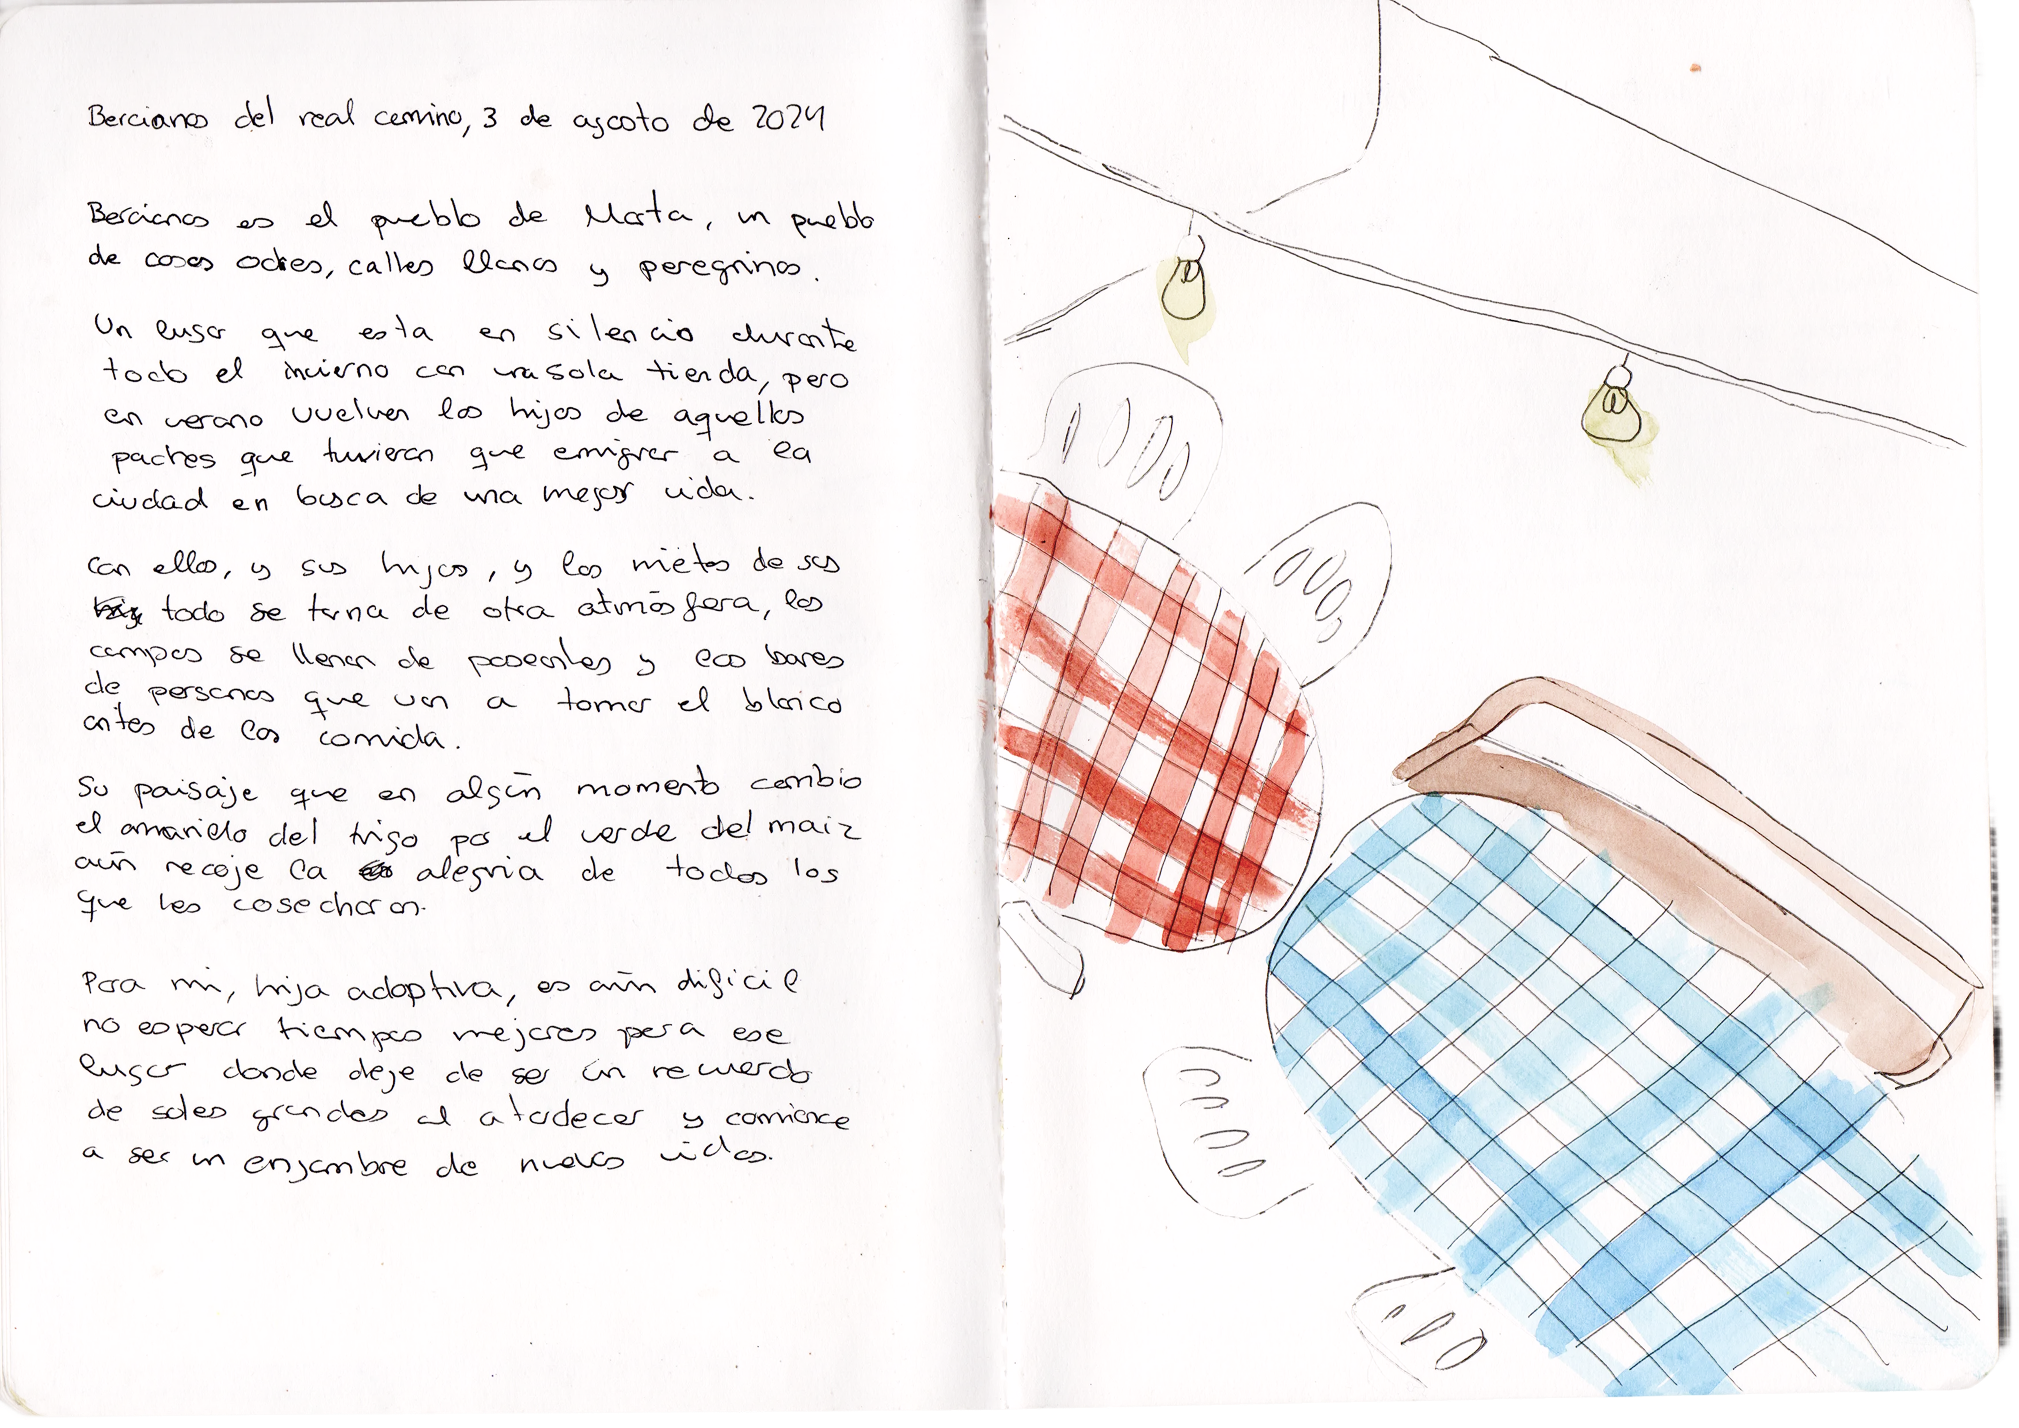 Bercianos del real camino, 3 de agosto de 2024
Bercianos es el pueblo de Marta, un pueblo
de casas ocres, calles llanas y peregrinos.
Un lugar que esta en silencio durante
todo el invierno con una sola tienda, pero
en verano vuelven los hijos de aquellos
padres que tuvieron que emigrar a la
ciudad en busca de una mejor vida.
Con ellos, y sus hijos, y los nietos de sus
todo se torna de otra atmósfera, los
campos se llenan de paseantes y los bares
de personas que van a tomar el blanco
antes de las comida.
Su paisaje que en algún momento cambio
el amarillo del trigo por el verde del maiz
aún recoje la alegria de todos los
que les cosecharon.
Para mi, hija adoptiva, es aún dificil
no esperar tiempos mejores para ese
lugar donde deje de ser un recuerdo
de soles grandes al atardecer y comience
a ser un enjambre de nuevas vidas.